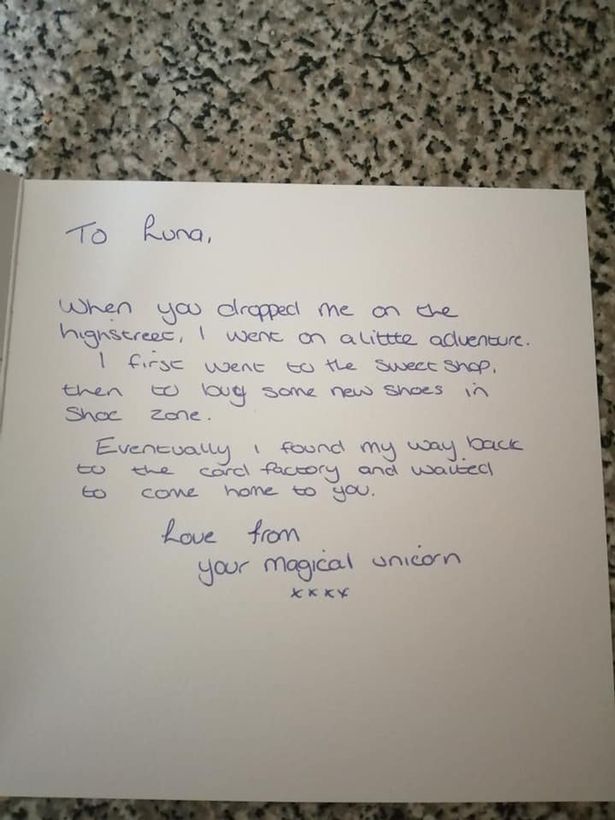 To Luna,
When you dropped me on the
highstreet, I went on a little adventure.
I first went to the sweet shop,
then to buy some new shoes in
Shoe Zone.
Eventually I found my way back
to the card factory and waited
to come home to you.
Love from
your magical unicorn
xxxx